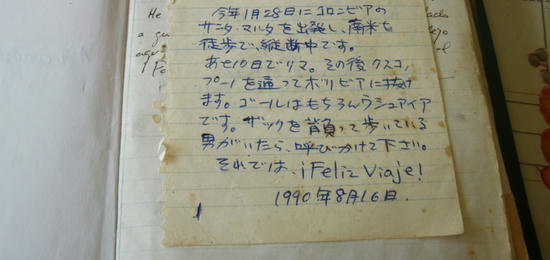 He
a gu
今年1月28日にコロンビアの
サンタ・マルタを出発し、南米を
徒歩で、縦断中です。
あと10日でリマ。その後クスコ、
プーノを通ってボリビアに抜け
ます。ゴールはもちろんウシュアイア
です。ザックを背負って歩いている
男がいたら、呼びかけて下さい。
それでは、¡Feliz Viaje!
1990年8月16日.